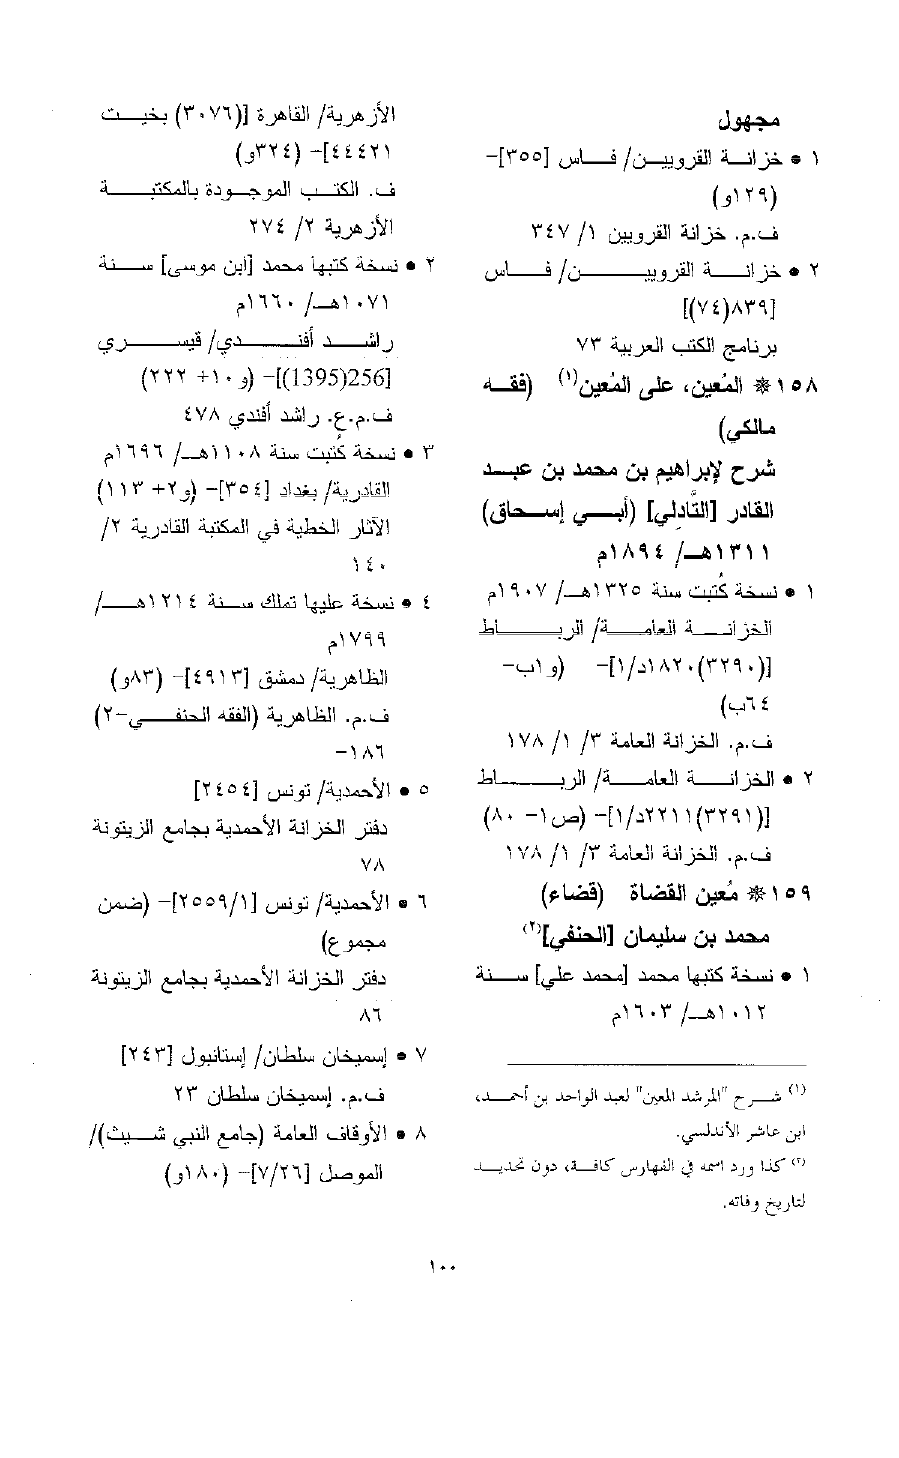 مجهول
١ • خزانة القرويين/ فاس [٣٥٥]-
(١٢٩و)
ف.م. خزانة القرويين ١/ ٣٤٧
٢ • خزانة القرويين/ فاس
[٨٣٩(٧٤)]
برنامج الكتب العربية ٧٣
١٥٨ ❊ المُعين، على المُعين(١) (فقه
مالكي)
شرح لإبراهيم بن محمد بن عبد
القادر [التَّادِلي] (أبي إسحاق)
١٣١١هـ/ ١٨٩٤م
١ • نسخة كُتبت سنة ١٣٢٥هـ/ ١٩٠٧م
الخزانة العامة/ الرباط
[(٣٢٩٠)١٨٢٠د/١]- (و١ب-
٦٤ب)
ف.م. الخزانة العامة ٣/ ١/ ١٧٨
٢ • الخزانة العامة/ الرباط
[(٣٢٩١)٢٢١١د/١]- (ص١- ٨٠)
ف.م. الخزانة العامة ٣/ ١/ ١٧٨
١٥٩ ❊ مُعين القضاة (قضاء)
محمد بن سليمان [الحنفي](٢)
١ • نسخة كتبها محمد [محمد علي] سنة
١٠١٢هـ/ ١٦٠٣م
(١) شرح "المرشد المعين" لعبد الواحد بن أحمد،
ابن عاشر الأندلسي.
(٢) كذا ورد اسمه في الفهارس كافة، دون تحديد
لتاريخ وفاته.
الأزهرية/ القاهرة [(٣٠٧٦) بخيت
٤٤٤٢١]- (٣٢٤و)
ف. الكتب الموجودة بالمكتبة
الأزهرية ٢/ ٢٧٤
٢ • نسخة كتبها محمد [ابن موسى] سنة
١٠٧١هـ/ ١٦٦٠م
راشد أفندي/ قيسري
[256(1395)]- (و١٠+ ٢٢٢)
ف.م.ع. راشد أفندي ٤٧٨
٣ • نسخة كُتبت سنة ١١٠٨هـ/ ١٦٩٦م
القادرية/ بغداد [٣٥٤]- (و٢+ ١١٣)
الآثار الخطية في المكتبة القادرية ٢/
١٤٠
٤ • نسخة عليها تملك سنة ١٢١٤هـ/
١٧٩٩م
الظاهرية/ دمشق [٤٩١٣]- (٨٣و)
ف.م. الظاهرية (الفقه الحنفي-٢)
١٨٦-
٥ • الأحمدية/ تونس [٢٤٥٤]
دفتر الخزانة الأحمدية بجامع الزيتونة
٧٨
٦ • الأحمدية/ تونس [٢٥٥٩/١]- (ضمن
مجموع)
دفتر الخزانة الأحمدية بجامع الزيتونة
٨٦
٧ • إسميخان سلطان/ إستانبول [٢٤٣]
ف.م. إسميخان سلطان ٢٣
٨ • الأوقاف العامة (جامع النبي شيث)/
الموصل [٧/٢٦]- (١٨٠و)
١٠٠